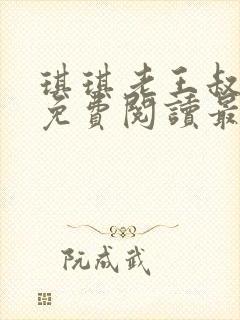 琪琪老王叔
免費閱讀最
阮成武